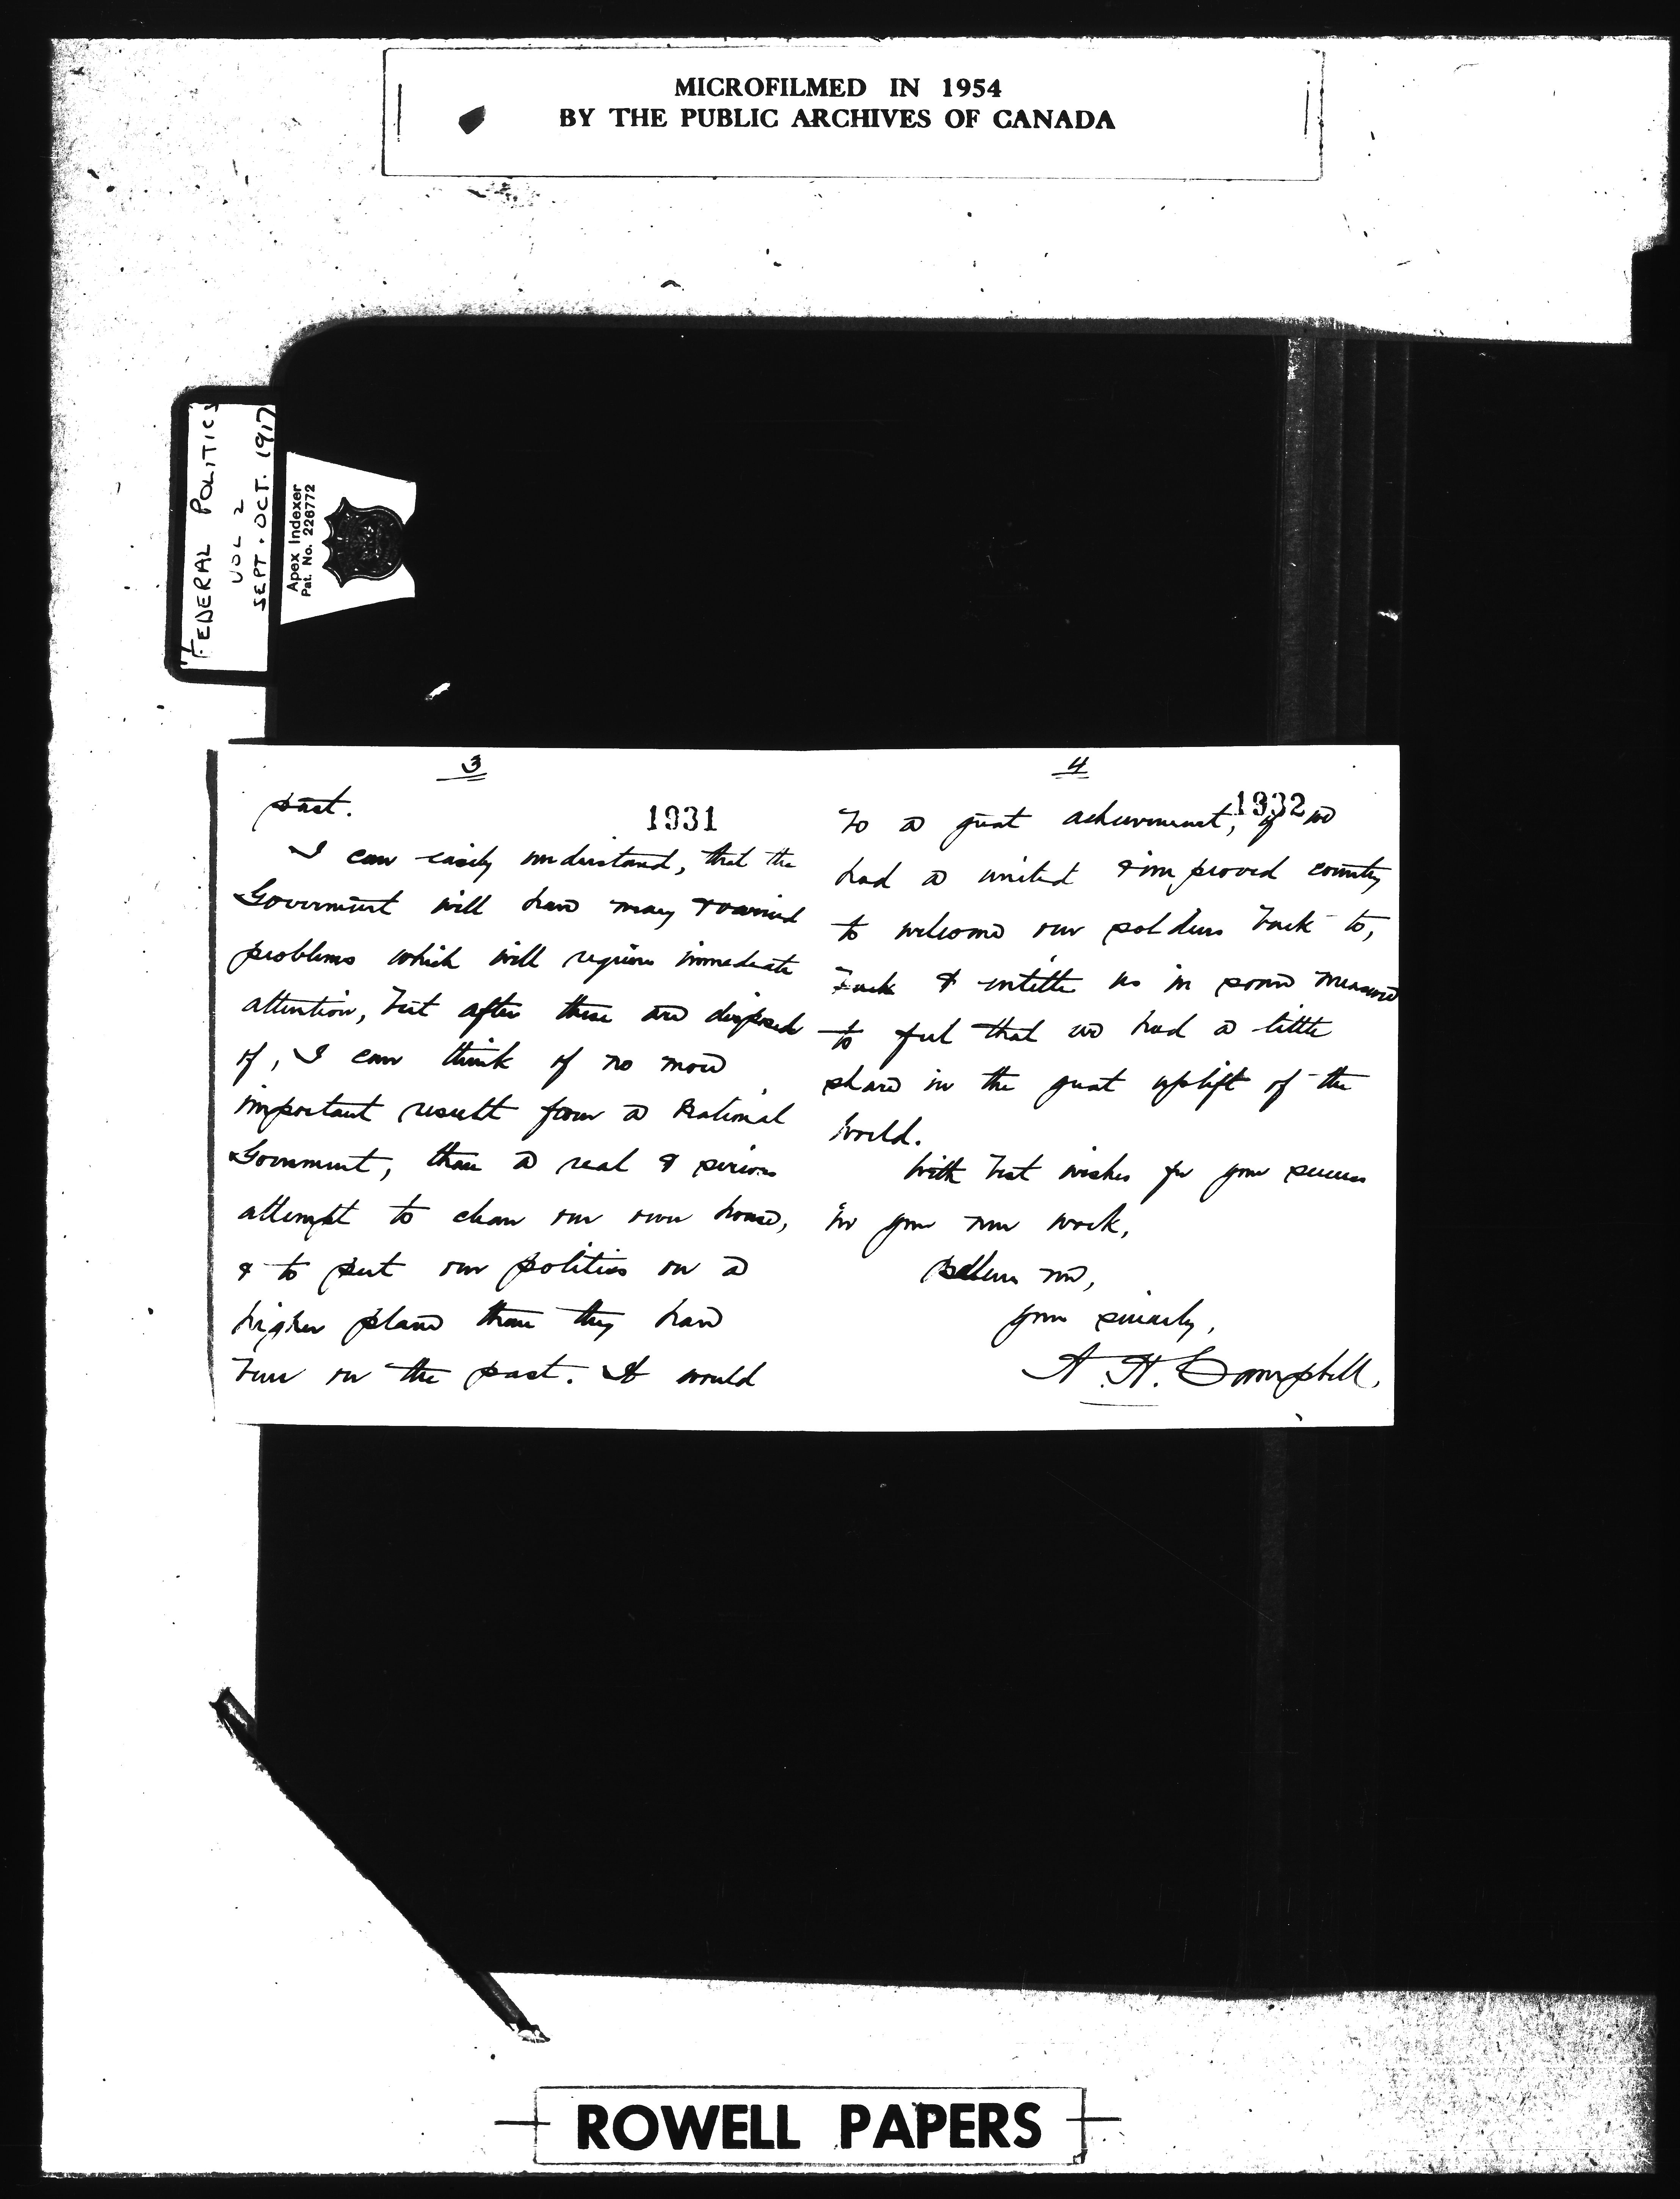 MICROFILMED IN 1954
BY THE PUBLIC ARCHIVES OF CANADA
FEDERAL POLITICS
VOL 2
SEPT. OCT. 1917
Apex Indexer
Pat. No. 226772
3
1931
past.
I can easily understand, that the
Government will have many & varied
problems which will require immediate
attention, but after these are disposed
of, I can think of no more
important result from a National
Government, than a real & serious
attempt to clean our own house,
& to put our politics on a
higher plane than they have
been in the past. It would
4
1932
be a great achievement, if we
had a united & improved country
to welcome our soldiers back to,
& entitle us in some measure
to feel that we had a little
share in the great uplift of the
world.
With best wishes for your success
in your new work,
Believe me,
yours sincerely,
A. H. Campbell.
ROWELL PAPERS